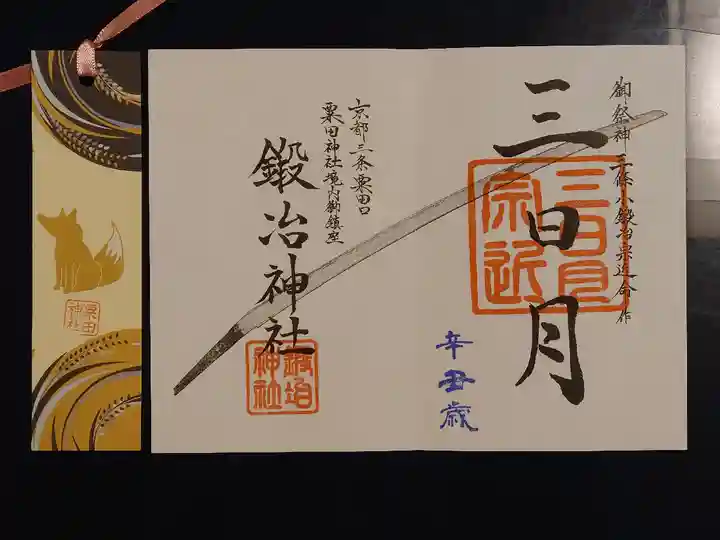 御祭神 三條小鍛冶宗近命作
三日月
三日月
宗近
辛丑歳
京都三条粟田口
粟田神社境内御鎮座
鍛冶神社
鍛冶
神社
粟田
神社